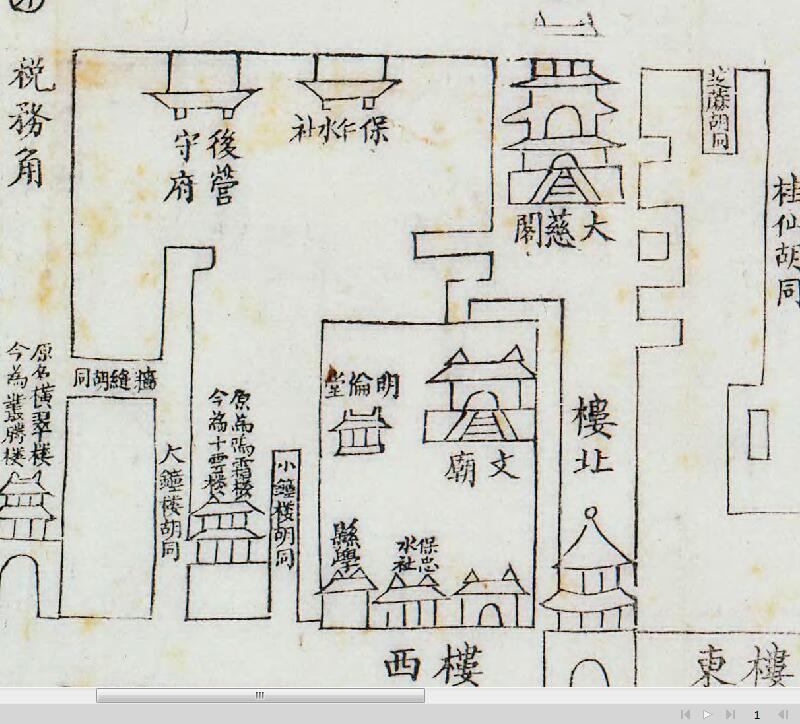 税務角
後營
守府
保仁水社
大慈閣
芝蔴胡同
桂仙胡同
牆縫胡同
原名橫翠楼
今為叢勝楼
大鐘楼胡同
原為鳴霜楼
今為十雲楼
小鐘楼胡同
明倫堂
文廟
縣學
保忠
水社
樓北
樓西
樓東
1